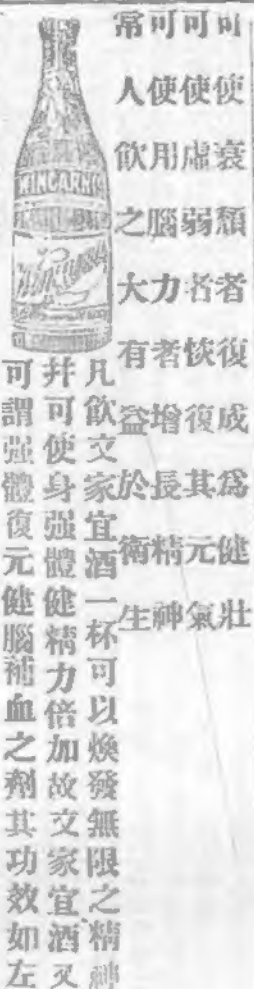 可使衰頹者復成爲健壯
可使虛弱者恢復其元氣
可使用腦力者增長精神
常人飲之大有益於衛生
WINCARNIS
凡飲文家宜酒一杯可以煥發無限之精神
幷可使身强體健精力倍加故文家宜酒又
可謂强體復元健腦補血之劑其功效如左